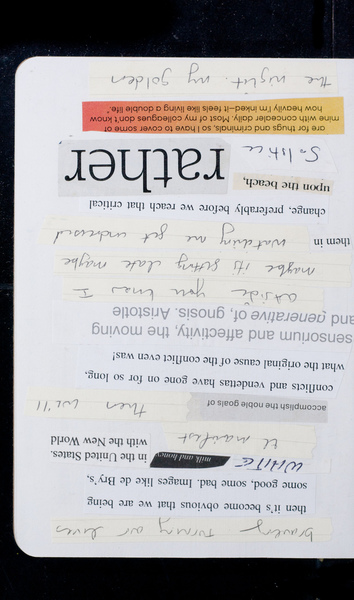 bravery turning our lives
then it's become obvious that we are being
some good, some bad. Images like de Bry's,
WHITE milk and honey in the United States.
manifest with the New World
accomplish the noble goals of then we'll
conflicts and vendettas have gone on for so long,
what the original cause of the conflict even was!
sensorisom and affectivity, the moving
and generative of, gnosis. Aristotle
you I
maybe its getting late maybe
them in watching me get undressed
change, preferably before we reach that critical
upon the beach, rather
Solstice
are for thugs and criminals, so I have to cover some of
mine with concealer daily. Most of my colleagues don't know
how heavily I'm inked–it feels like living a double life."
the night. my golden